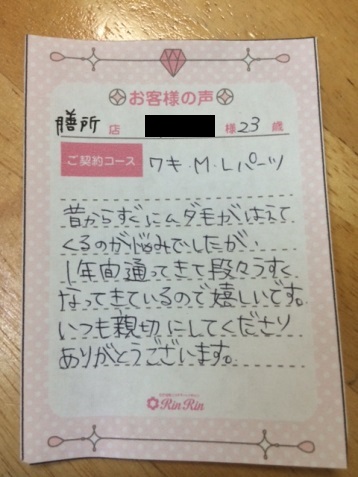 お客様の声
膳所 店 様 23 歳
ご契約コース ワキ・M・Lパーツ
昔からすぐにムダ毛がはえて
くるのが悩みでしたが、
1年間通ってきて段々うすく
なってきているので嬉しいです。
いつも親切にしてくださり
ありがとうございます。
RinRin